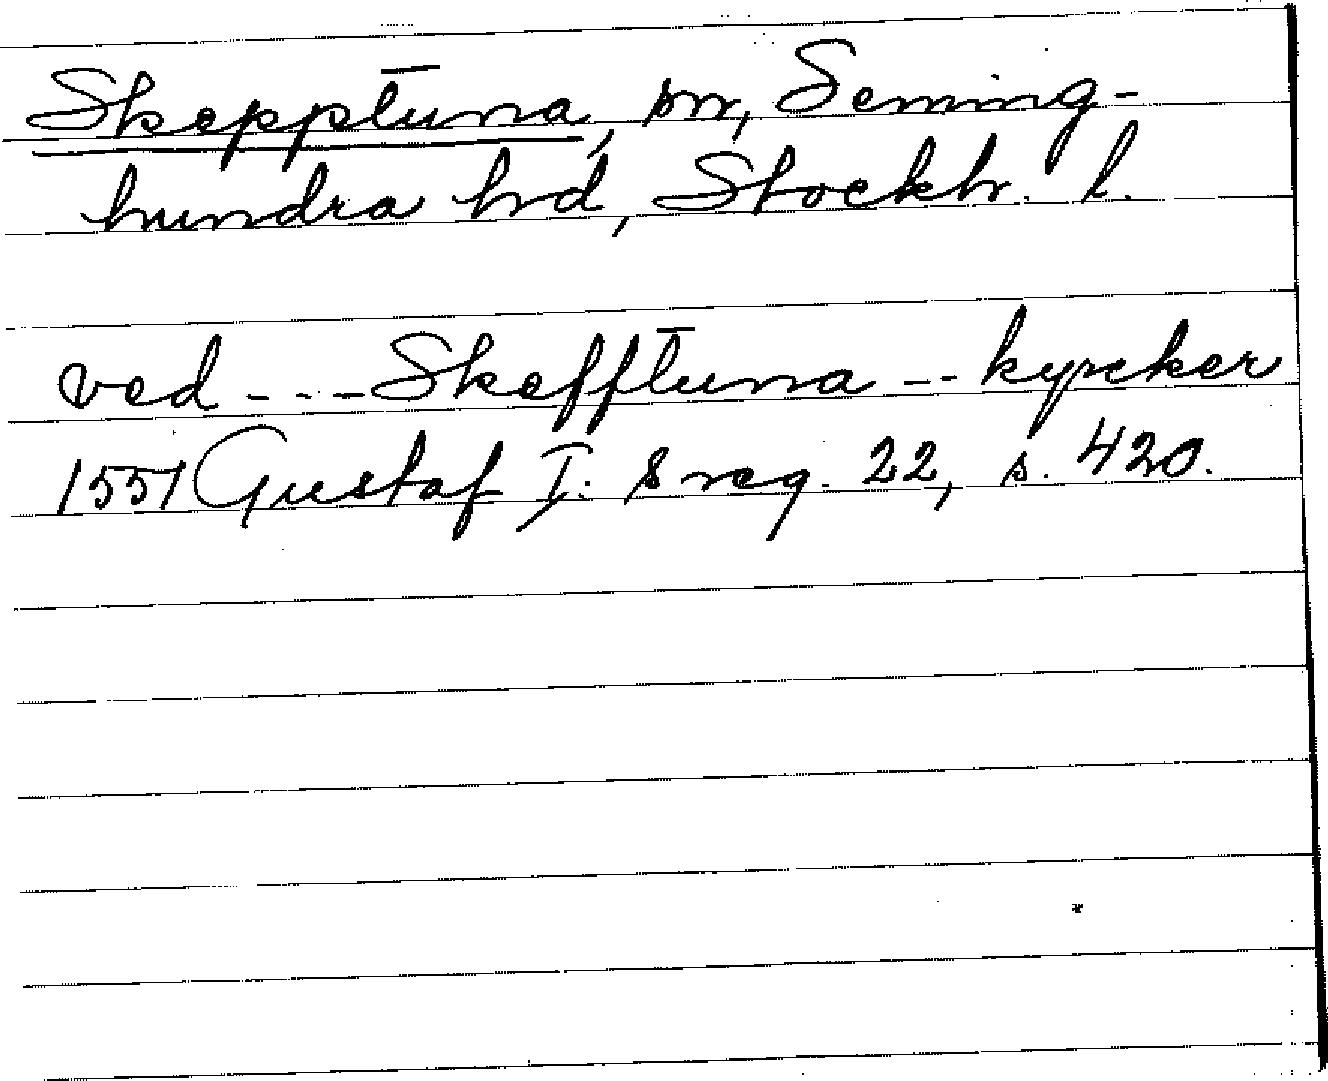 Skepptuna, sn, Seming-
hundra hd, Stockh. l.
ved - - - Skefftuna - - kyrcker
1551 Gustaf I: s reg. 22, s. 420.